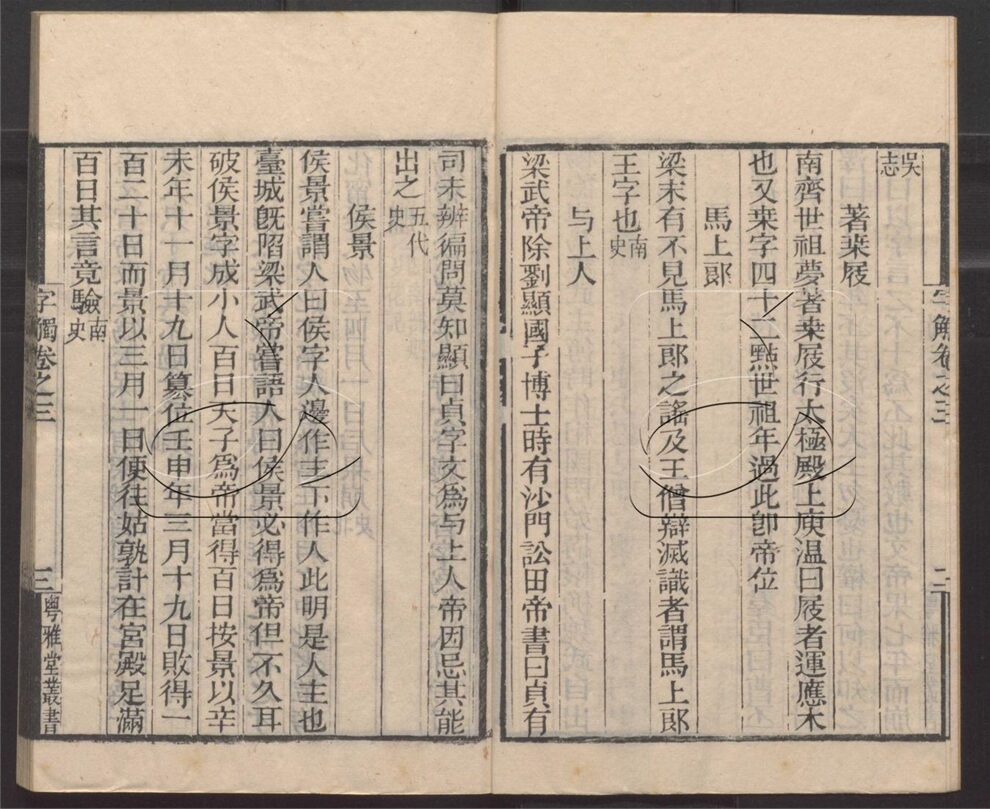 吳志
著桒屐
南齊世祖夢著桒屐行太極殿上庾温曰屐者運應木
也又桒字四十二點世祖年過此卽帝位
馬上郞
梁末有不見馬上郞之謠及王僧辯滅識者謂馬上郞
王字也南史
与上人
梁武帝除劉顯國子博士時有沙門訟田帝書曰貞有
字觸卷之三
二
司未辨徧問莫知顯曰貞字文爲与上人帝因忌其能
出之五代史
侯景
侯景嘗謂人曰侯字人邊作主下作人此明是人主也
臺城旣陷梁武帝嘗語人曰侯景必得爲帝但不久耳
破侯景字成小人百日天子爲帝當得百日按景以辛
未年十一月十九日篡位壬申年三月十九日敗得一
百二十日而景以三月一日便往姑孰計在宮殿足滿
百日其言竟驗南史
字觸卷之三
三
粵雅堂叢書